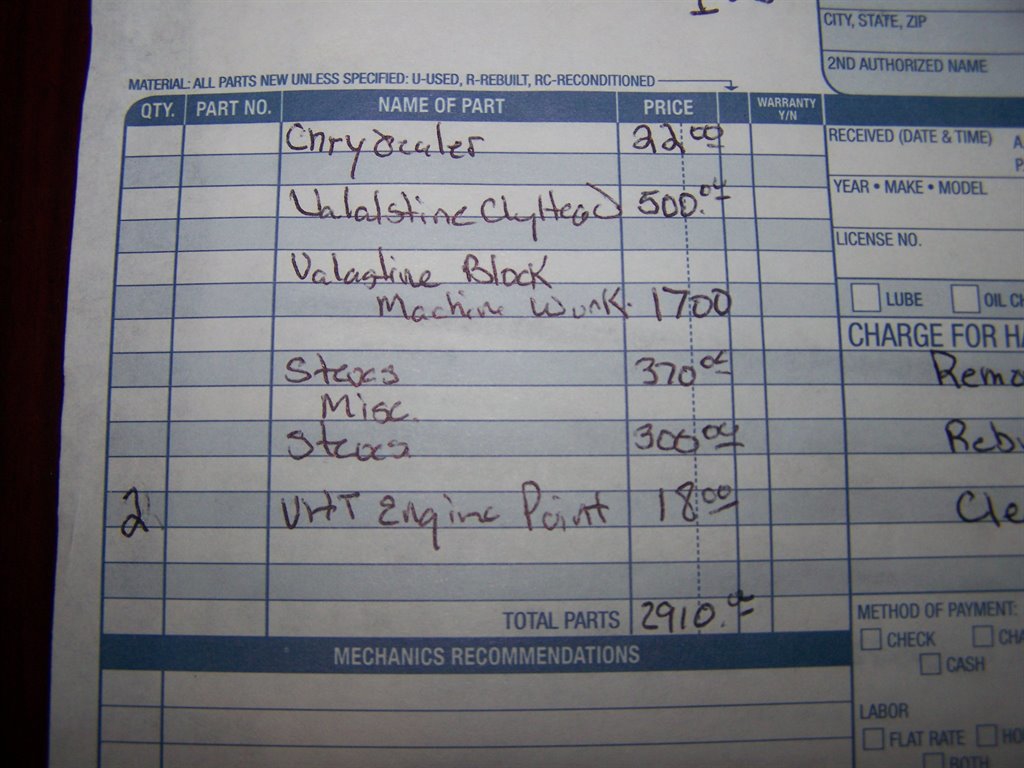 CITY, STATE, ZIP
2ND AUTHORIZED NAME
MATERIAL: ALL PARTS NEW UNLESS SPECIFIED: U-USED, R-REBUILT, RC-RECONDITIONED
QTY. PART NO. NAME OF PART PRICE WARRANTY Y/N
22.00
RECEIVED (DATE & TIME) A.
P.
500.00
YEAR • MAKE • MODEL
LICENSE NO.
Valastine Block
Machine Work. 1700
LUBE OIL CH
CHARGE FOR HA
370.00
Remo
Misc.
300.00
Rebu
2 VHT Engine Paint 18.00
Cle
TOTAL PARTS 2910.00
METHOD OF PAYMENT:
CHECK CHA
CASH
MECHANICS RECOMMENDATIONS
LABOR
FLAT RATE HO
BOTH